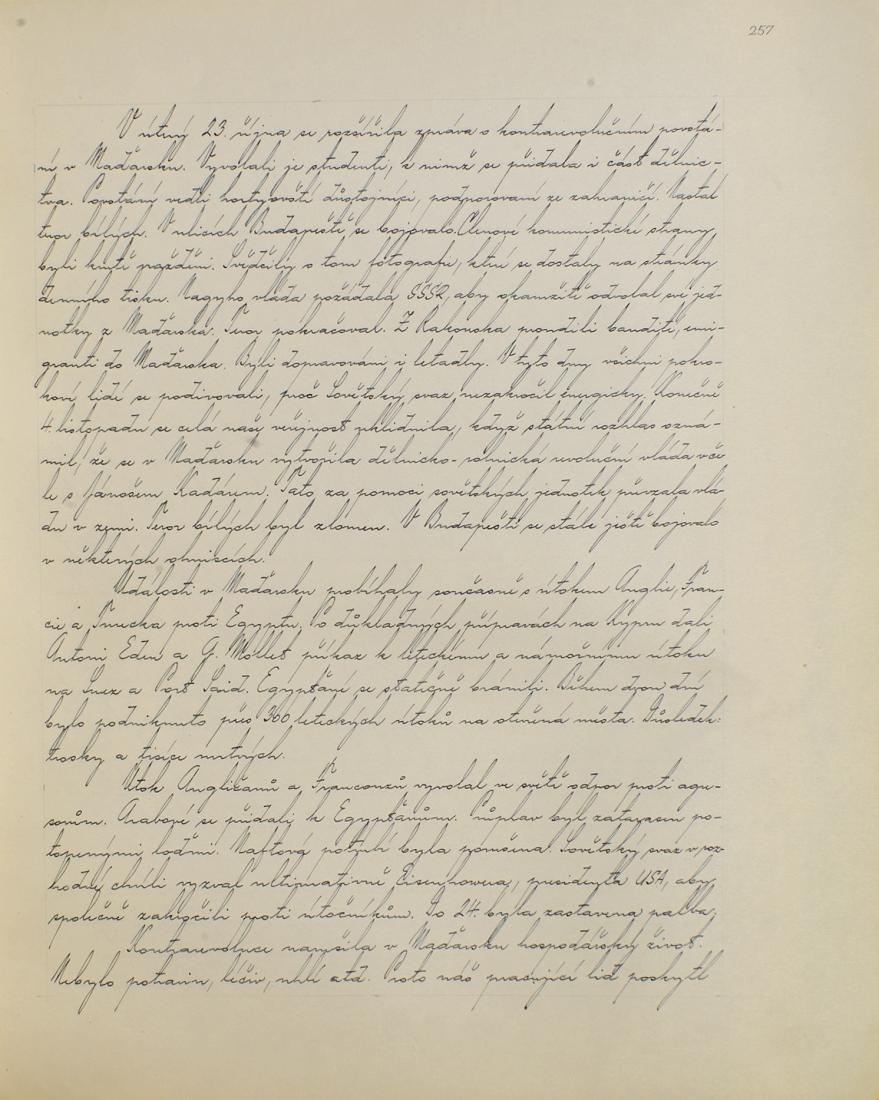 257
V úterý 23. října se rozšířila zpráva o kontrarevolučním povstá-
ní v Maďarsku. Vyvolali je studenti, k nimž se přidala i část dělnic-
tva. Povstání vedli hortyovští důstojníci, podporovaní ze zahraničí. Nastal
teror bílých. V ulicích Budapešti se bojovalo. Členové komunistické strany,
byli krutě pražděni. Svědčily o tom fotografie, které se dostaly na stránky
denního tisku. Nagyho vláda požádala SSSR, aby okamžitě odvolal své jed-
notky z Maďarska. Teror pokračoval. Z Rakouska proudili banditi, emi-
granti do Maďarska. Byli dopravováni i letadly. V tyto dny všichni pokro-
koví lidé se podivovali, proč Sovětský svaz nezakročil energicky. Konečně
4. listopadu se celá naše veřejnost uklidnila, když státní rozhlas ozná-
mil, že se v Maďarsku vytvořila dělnicko-rolnická revoluční vláda v če-
le s Jánošem Kadárem. Tato za pomoci sovětských jednotek převzala vlá-
du v zemi. Teror bílých byl zlomen. V Budapešti se stále ještě bojovalo
v některých ohniscích.
Události v Maďarsku probíhaly současně s útokem Anglie, Fran-
cie a Turecka proti Egyptu. Po důkladných přípravách na Kypru dali
Antoni Eden a G. Mollet příkaz k leteckému a námořnímu útoku
na Suez a Port Said. Egypťané se statečně bránili. Během dvou dní
bylo podniknuto přes 300 leteckých útoků na otevřená města. Důsledek:
trosky a tisíce mrtvých.
Útok Angličanů a Francouzů vyvolal ve světě odpor proti agre-
sorům. Arabové se přidali k Egypťanům. Průplav byl zatarasen po-
topenými loďmi. Naftová potrubí byla porušena. Sovětský svaz v roz-
hodné chvíli vyzval ultimativně Eisenhowera, presidenta USA, aby
společně zakročili proti útočníkům. Do 24. byla zastavena palba.
Kontrarevoluce narušila v Maďarsku hospodářský život.
Nebylo potravin, léčiv, uhlí atd. Proto náš pracující lid poskytl